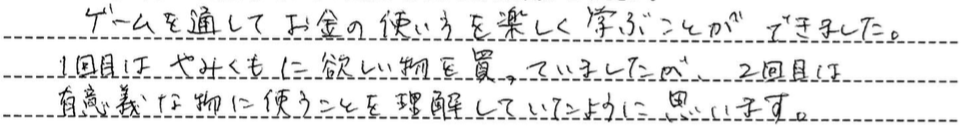 ゲームを通してお金の使い方を楽しく学ぶことができました。
1回目はやみくもに欲しい物を買っていましたが、2回目は
有意義な物に使うことを理解していたように思います。